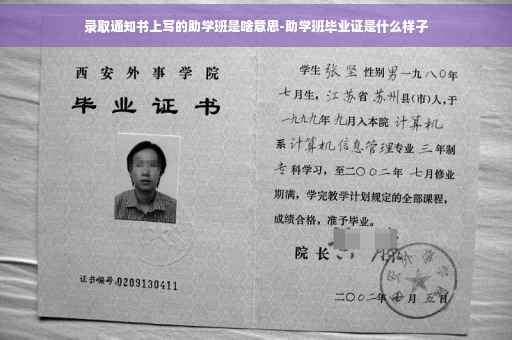 录取通知书上写的助学班是啥意思-助学班毕业证是什么样子
西安外事学院
毕业证书
证书编号:0209130411
学生 张坚 性别 男 一九八〇年
七月生, 江苏省 苏州县(市)人,于
一九九九年 九月入本院 计算机
系 计算机信息管理专业 三 年制
专 科学习,至二〇〇二年 七月修业
期满,学完教学计划规定的全部课程,
成绩合格,准予毕业。
院 长
二〇〇二年 月 五日